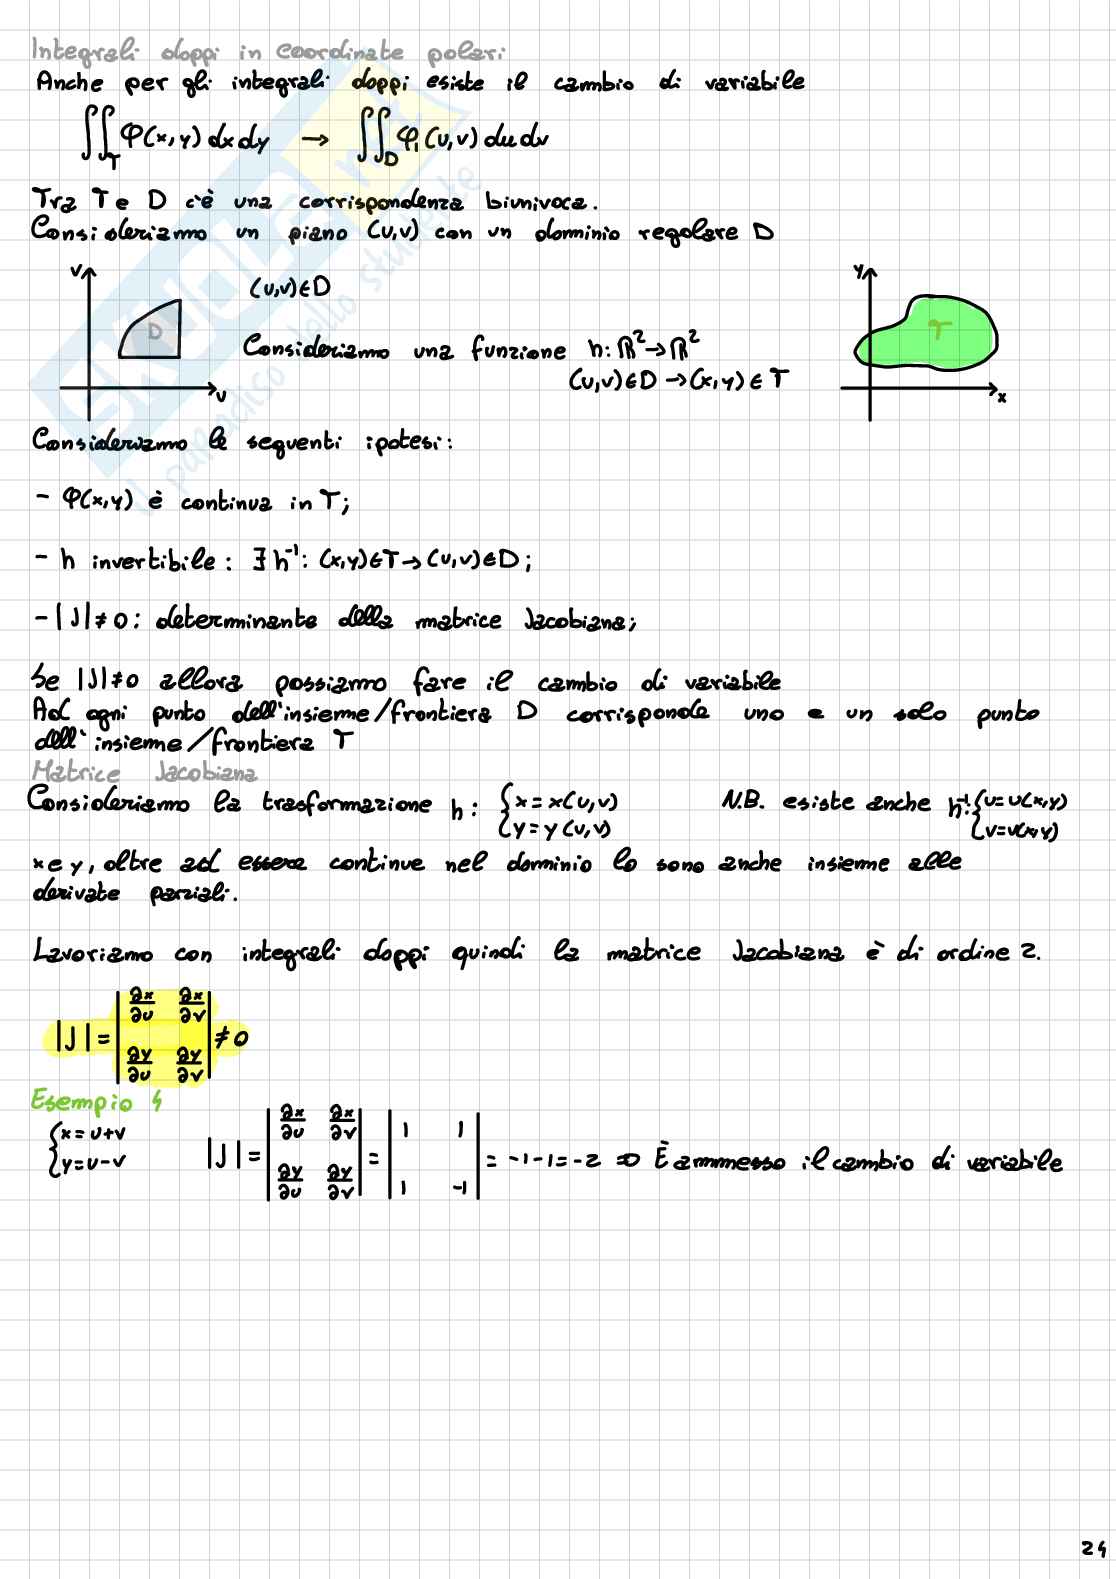 Integrali doppi in coordinate polari
Anche per gli integrali doppi esiste il cambio di variabile
∬_T φ(x,y) dx dy → ∬_D φ₁(u,v) du dv
Tra T e D c'è una corrispondenza biunivoca.
Consideriamo un piano (u,v) con un dominio regolare D
v
D
u
(u,v)∈D
Consideriamo una funzione h: ℝ²→ℝ²
(u,v)∈D → (x,y)∈T
y
T
x
Consideriamo le seguenti ipotesi:
- φ(x,y) è continua in T;
- h invertibile: ∃ h⁻¹: (x,y)∈T → (u,v)∈D;
- |J|≠0: determinante della matrice Jacobiana;
Se |J|≠0 allora possiamo fare il cambio di variabile
Ad ogni punto dell'insieme/frontiera D corrisponde uno e un solo punto
dell'insieme/frontiera T
Matrice Jacobiana
Consideriamo la trasformazione h: { x = x(u,v) N.B. esiste anche h⁻¹: { u = u(x,y)
y = y(u,v) v = v(x,y)
x e y, oltre ad essere continue nel dominio lo sono anche insieme alle
derivate parziali.
Lavoriamo con integrali doppi quindi la matrice Jacobiana è di ordine 2.
|J| = | ∂x/∂u ∂x/∂v |
| ∂y/∂u ∂y/∂v | ≠ 0
Esempio 4
{ x = u+v |J| = | ∂x/∂u ∂x/∂v | = | 1 1 | = -1-1 = -2 ⇒ È ammesso il cambio di variabile
y = u-v | ∂y/∂u ∂y/∂v | | 1 -1 |
24
skuola.net
il paradiso dello studente